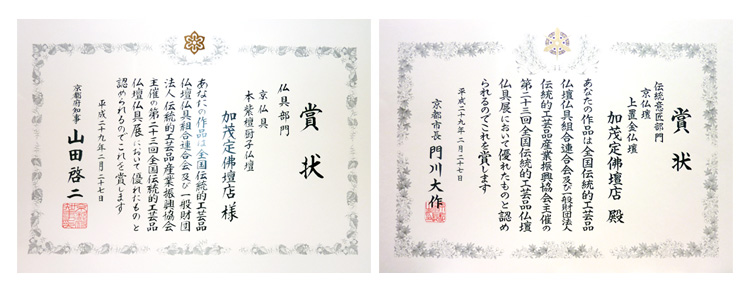 賞状
仏具部門
京仏具
本紫檀厨子仏壇
加茂定佛壇店 様
あなたの作品は全国伝統的工芸品
仏壇仏具組合連合会及び一般財団
法人伝統的工芸品産業振興協会
主催の第二十三回全国伝統的工芸品
仏壇仏具展において優れたものと
認められるのでこれを賞します
平成二十九年二月二十七日
京都府知事 山田啓二
賞状
伝統意匠部門
京仏壇
上置金仏壇
加茂定佛壇店 殿
あなたの作品は全国伝統的工芸品
仏壇仏具組合連合会及び一般財団法人
伝統的工芸品産業振興協会主催の
第二十三回全国伝統的工芸品仏壇
仏具展において優れたものと認め
られるのでこれを賞します
平成二十九年二月二十七日
京都市長 門川大作